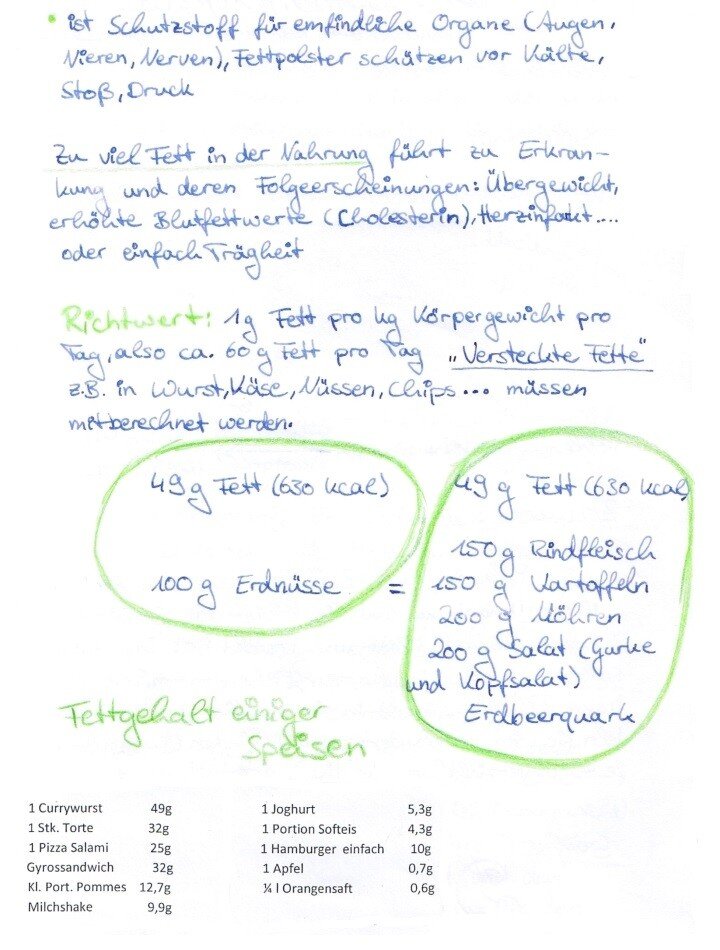 • ist Schutzstoff für emfindliche Organe (Augen,
Nieren, Nerven), Fettpolster schätzen vor Kälte,
Stoß, Druck
Zu viel Fett in der Nahrung führt zu Erkran-
kung und deren Folgeerscheinungen: Übergewicht,
erhöhte Blutfettwerte (Cholesterin), Herzinfakt....
oder einfach Trägheit
Richtwert: 1g Fett pro kg Körpergewicht pro
Tag, also ca. 60g Fett pro Tag „Versteckte Fette“
z.B. in Wurst, Käse, Nüssen, Chips... müssen
mitberechnet werden.
49g Fett (630 kcal)
100g Erdnüsse
=
49g Fett (630 kcal)
150g Rindfleisch
150g Kartoffeln
200g Möhren
200g Salat (Gurke
und Kopfsalat)
Erdbeerquark
Fettgehalt einiger
Speisen
1 Currywurst 49g
1 Stk. Torte 32g
1 Pizza Salami 25g
Gyrossandwich 32g
Kl. Port. Pommes 12,7g
Milchshake 9,9g
1 Joghurt 5,3g
1 Portion Softeis 4,3g
1 Hamburger einfach 10g
1 Apfel 0,7g
¼ l Orangensaft 0,6g